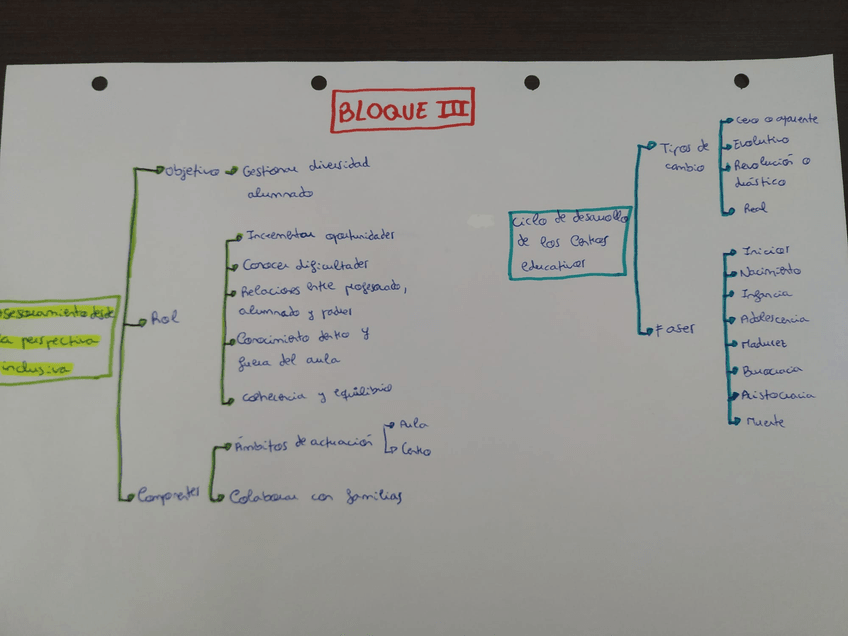 BLOQUE III
Objetivo
Gestionar diversidad
alumnado
Asesoramiento desde
la perspectiva
inclusiva
Rol
Incrementar oportunidades
Conocer dificultades
Relaciones entre profesorado,
alumnado y padres
Conocimiento dentro y
fuera del aula
coherencia y equilibrio
Componentes
Ámbitos de actuación
Aula
Centro
Colaborar con familias
Ciclo de desarrollo
de los Centros
educativos
Tipos de
cambio
Cero o aparente
Evolutivo
Revolución o
drástico
Real
Fases
Inicios
Nacimiento
Infancia
Adolescencia
Madurez
Burocracia
Aristocracia
Muerte